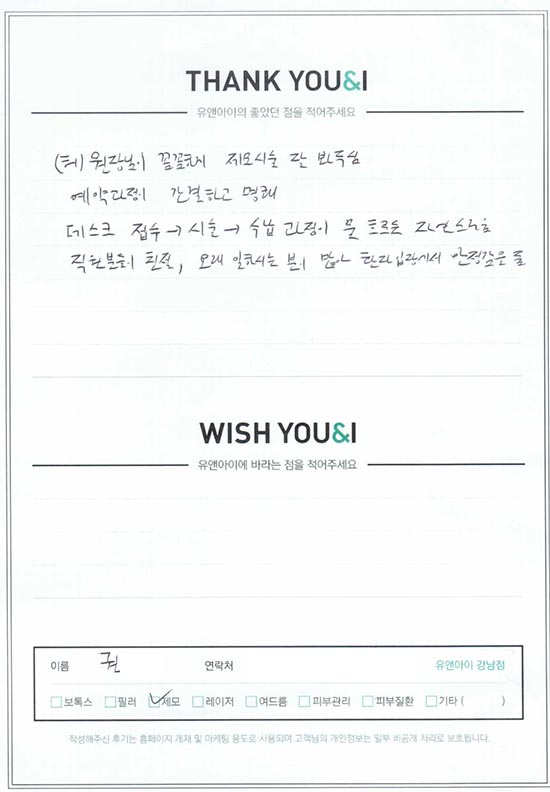 THANK YOU&I
유앤아이의 좋았던 점을 적어주세요
원장님이 꼼꼼하게 제모시술 잘 봐주심
예약과정이 간결하고 명쾌
데스크 접수 → 시술 → 수납 과정이 물 흐르듯 자연스러움
직원분들이 친절, 오래 일하시는 분이 많아 환자입장에서 안정감을 줌
WISH YOU&I
유앤아이에 바라는 점을 적어주세요
이름 권 연락처 유앤아이 강남점
보톡스 필러 제모 레이저 여드름 피부관리 피부질환 기타 ( )
작성해주신 후기는 홈페이지 게재 및 마케팅 용도로 사용되며 고객님의 개인정보는 일부 비공개 처리로 보호됩니다.